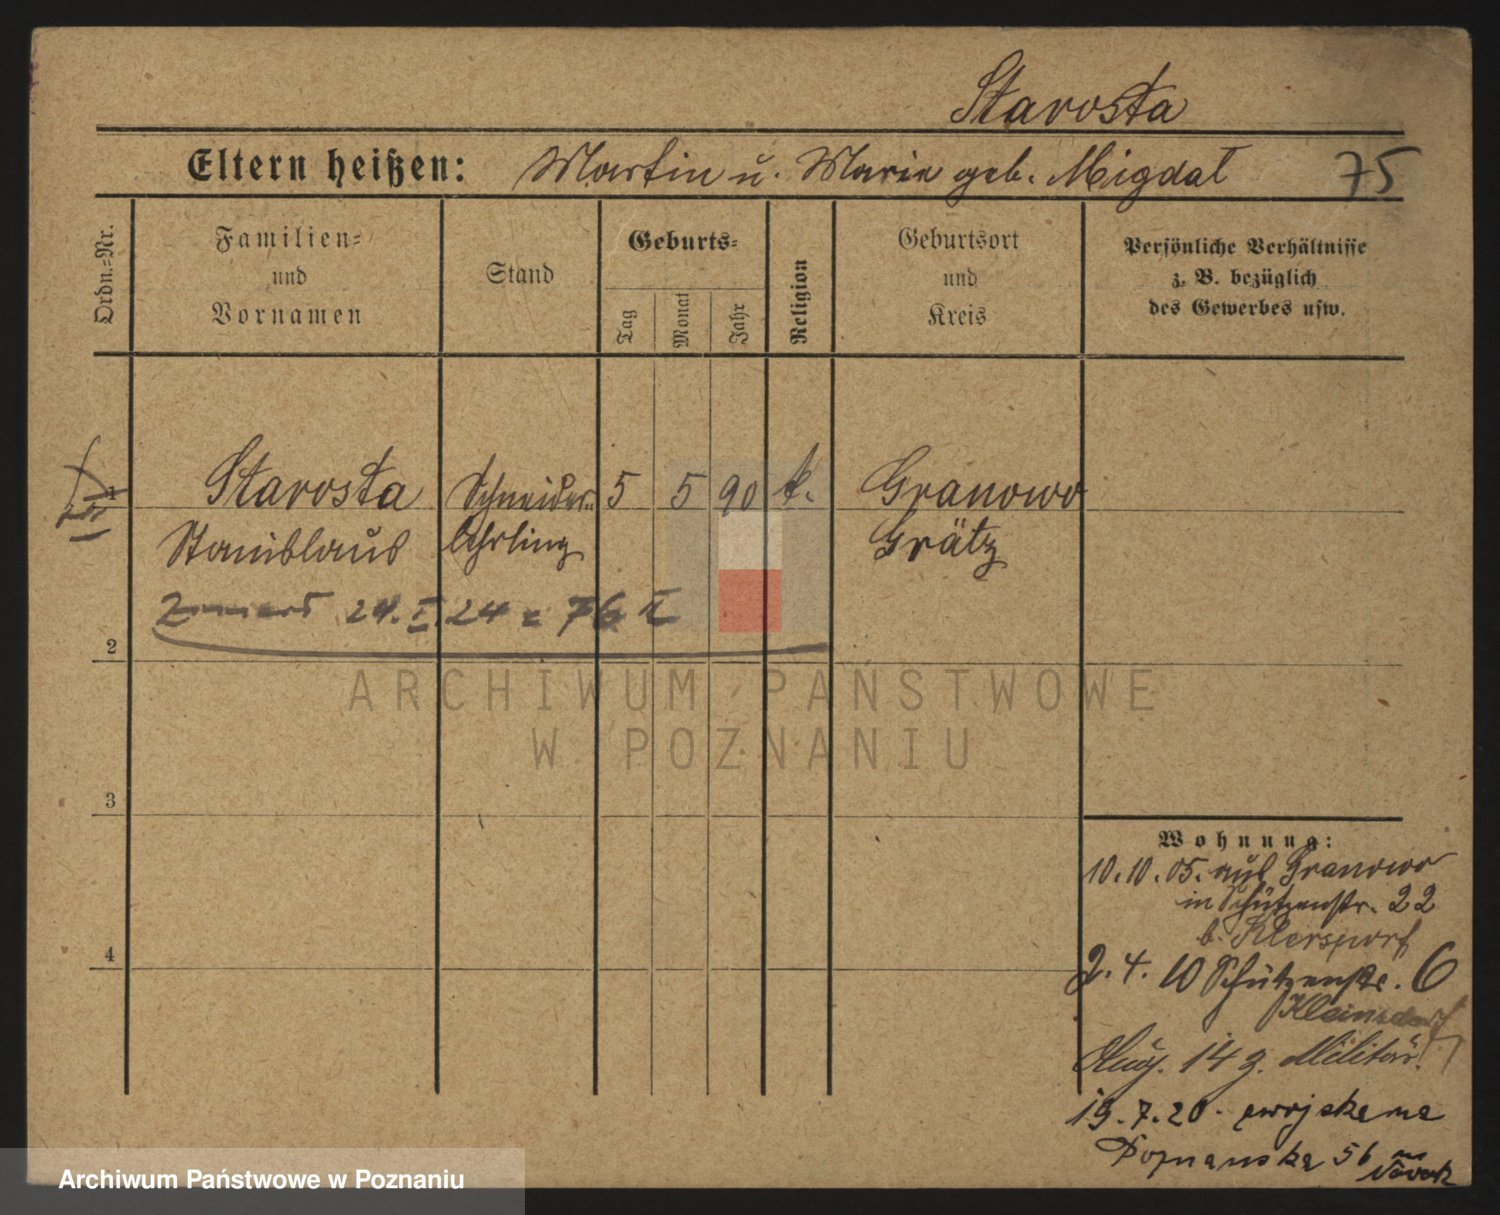 Starosta
Eltern heißen: Martin u. Marie geb. Migdal 75
Ordn.-Nr.
Familien-
und
Vornamen
Stand
Geburts-
Tag
Monat
Jahr
Religion
Geburtsort
und
Kreis
Persönliche Verhältnisse
z. B. bezüglich
des Gewerbes usw.
1 Starosta Schneider- 5 5 90 k. Granowo
Stanislaus lehrling Grätz
24. I. 24 = 76 II
2
ARCHIWUM PAŃSTWOWE
W POZNANIU
3
Wohnung:
10.10.05. aus Granowo
in Schützenstr. 22
b.
4
2.4.10 Schützenstr. 6
Kleinsdorf
Aug. 14 z. Militär.
19.7.20. z wojska na
Poznańska 56 Nowak
Archiwum Państwowe w Poznaniu